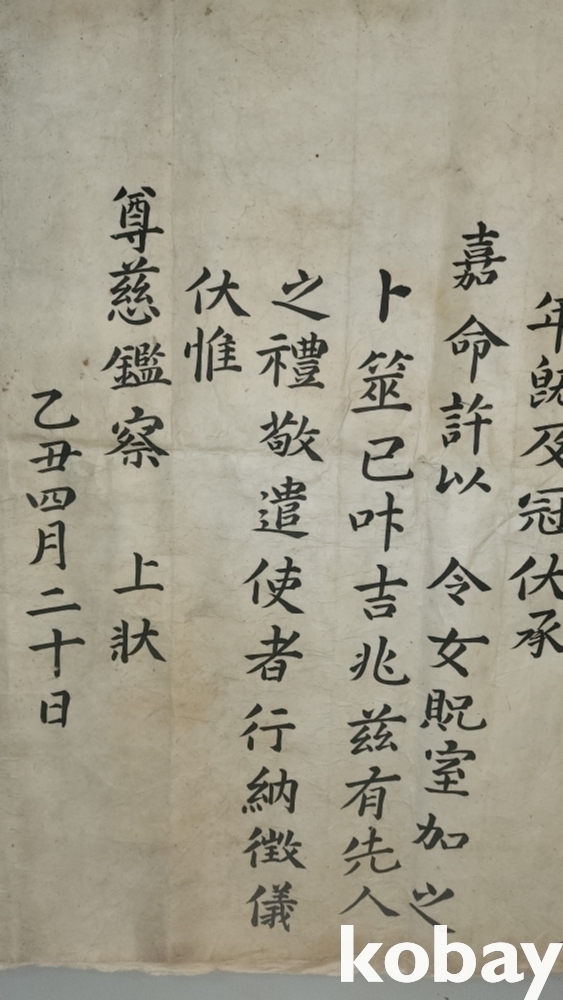 年既及冠伏承
嘉命許以 令女貺室加之
卜筮已叶吉兆茲有先人
之禮敬遣使者行納徵儀
伏惟
尊慈鑑察 上狀
乙丑四月二十日
kobay